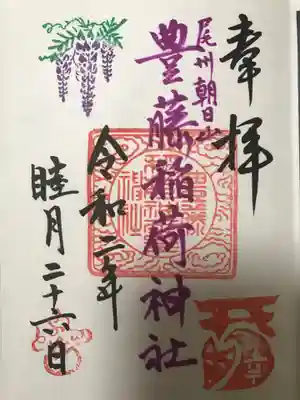 奉拝
尾州朝日山
豊藤稲荷神社
令和二年
睦月二十六日